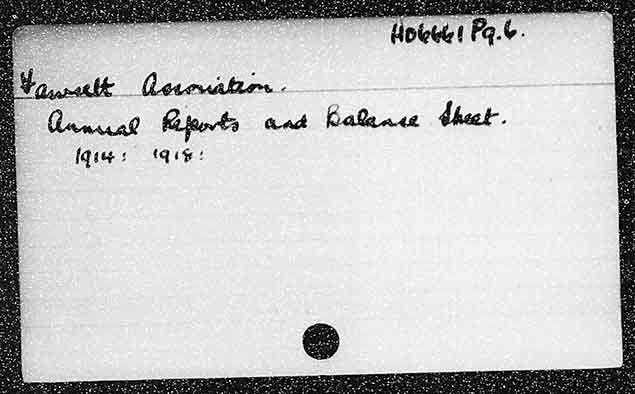 HD6661 Pq.6.
Fawcett Association.
Annual Reports and Balance Sheet.
1914: 1918: